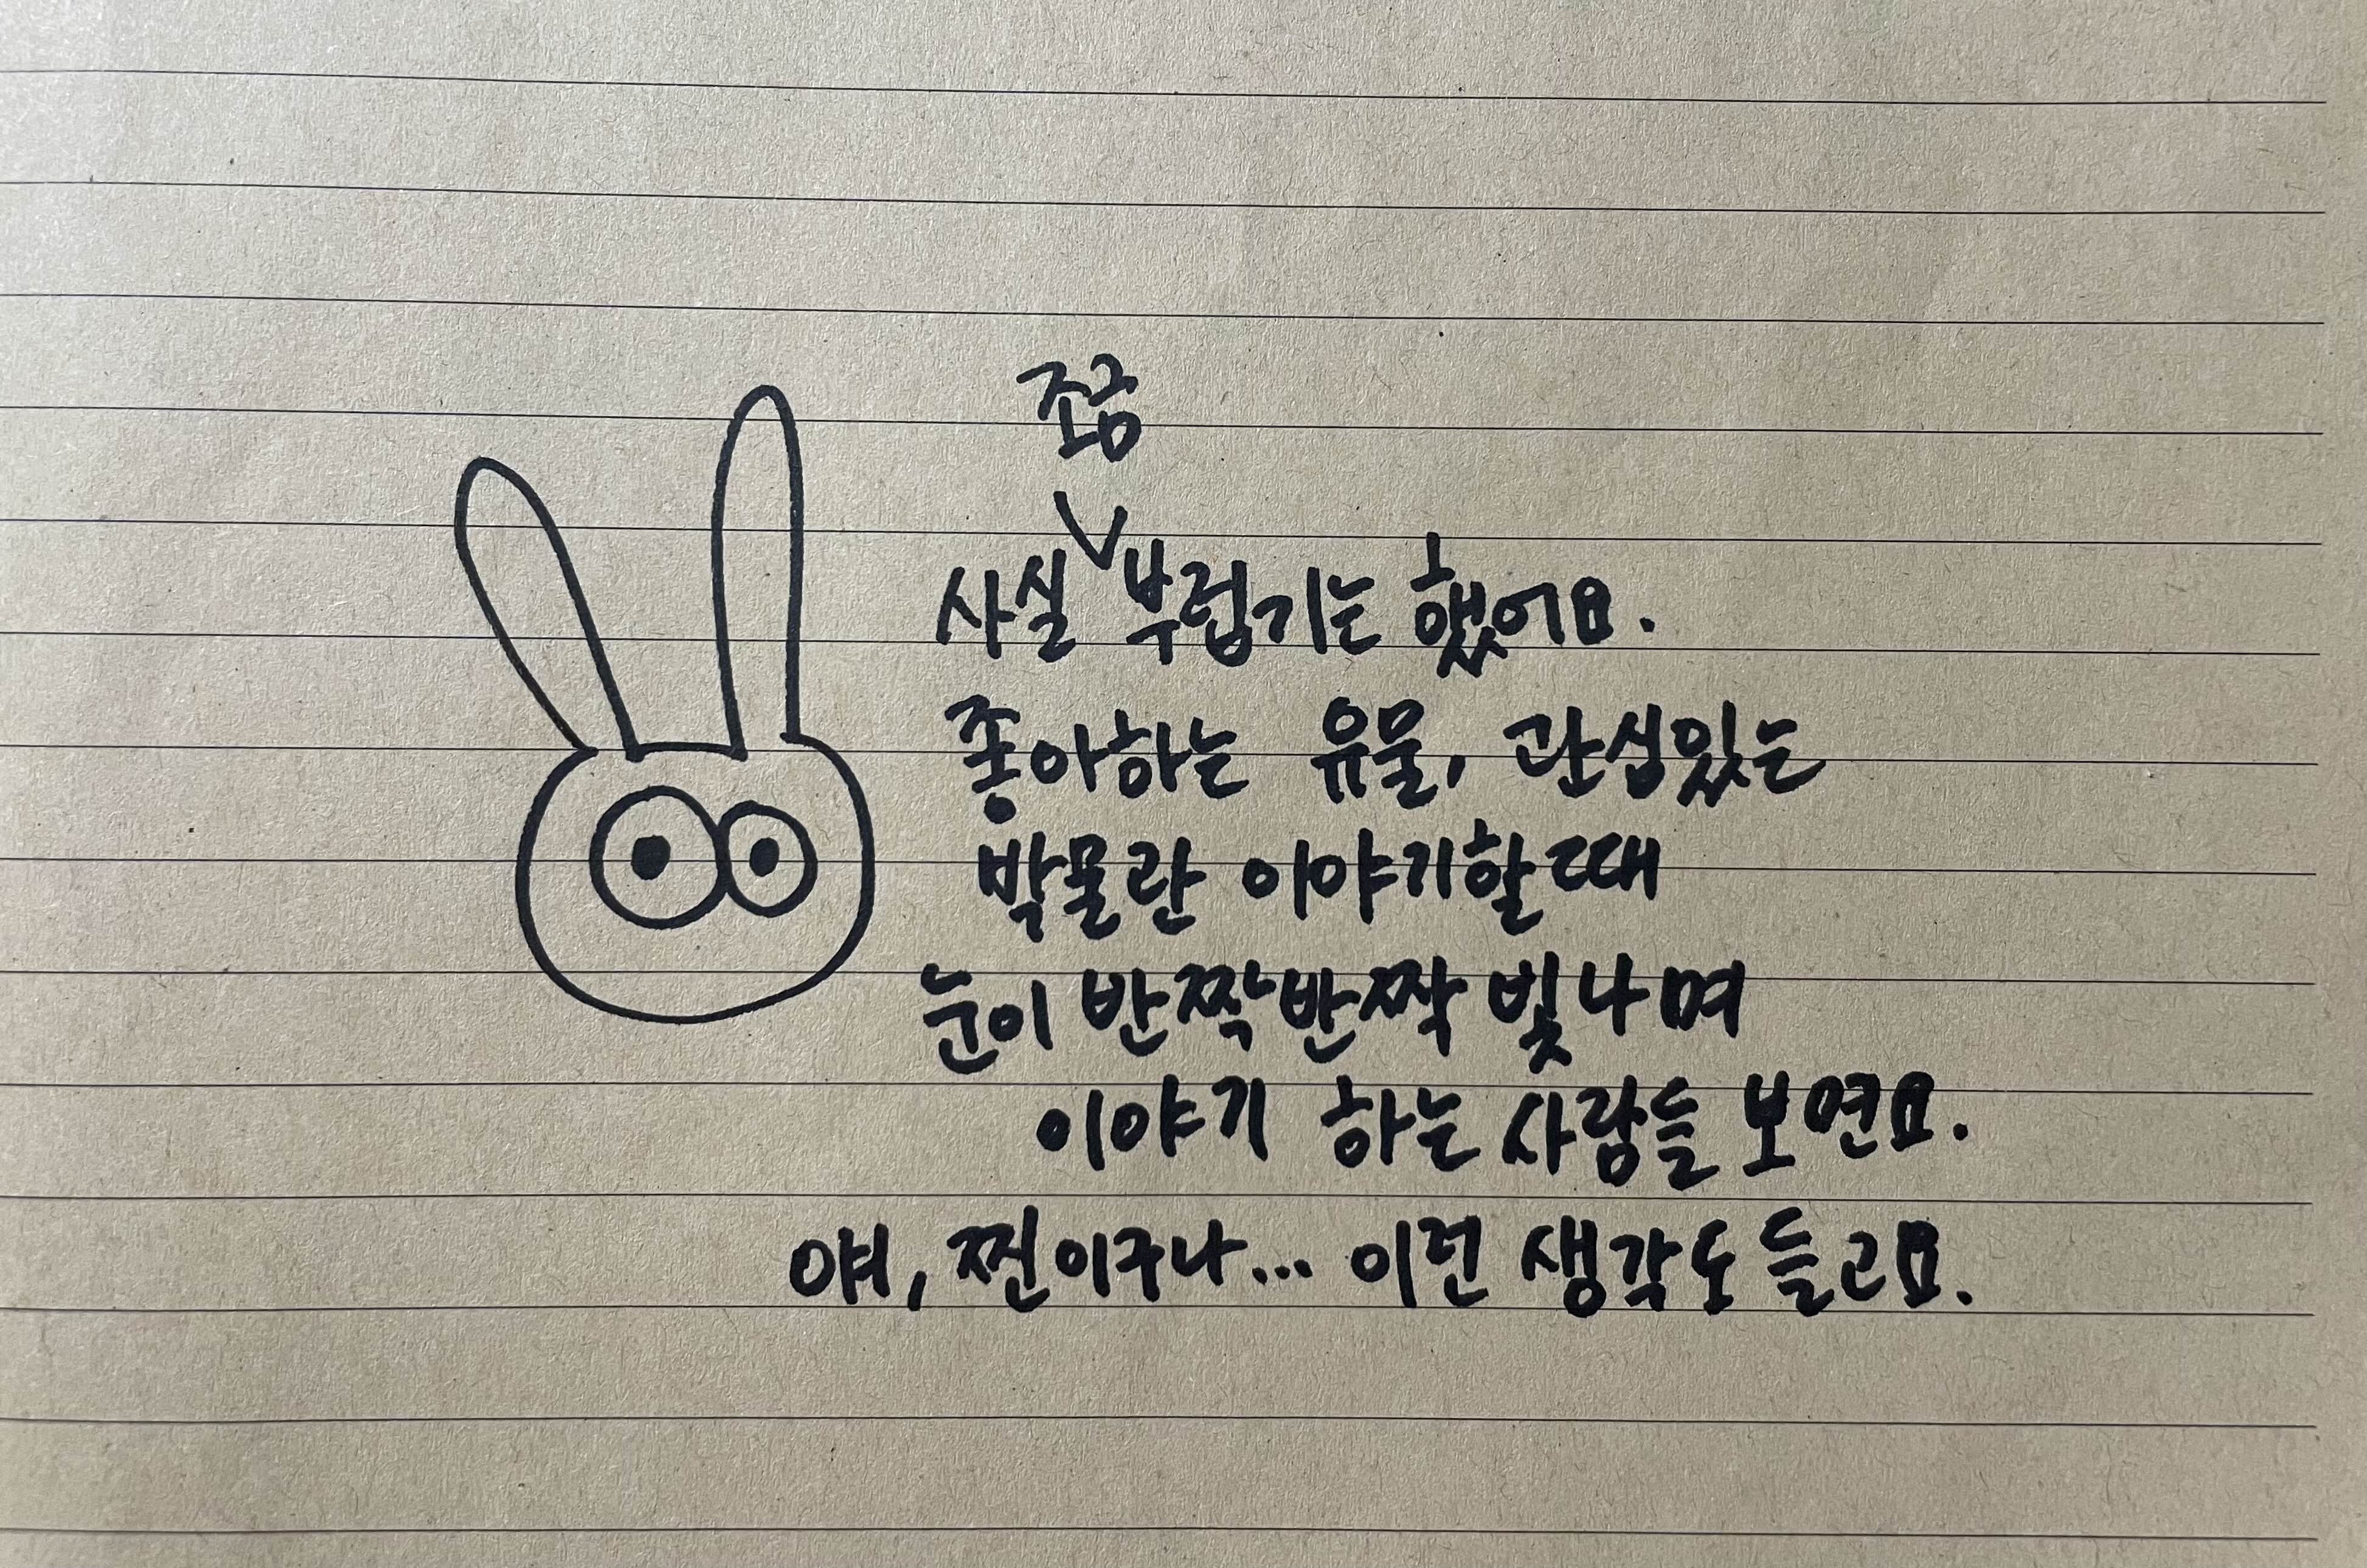 조금
사실 부럽기는 했어요.
좋아하는 유물, 관심있는
박물관 이야기할때
눈이 반짝반짝 빛나며
이야기 하는 사람들 보면요.
얘, 찐이구나... 이런 생각도 들고요.